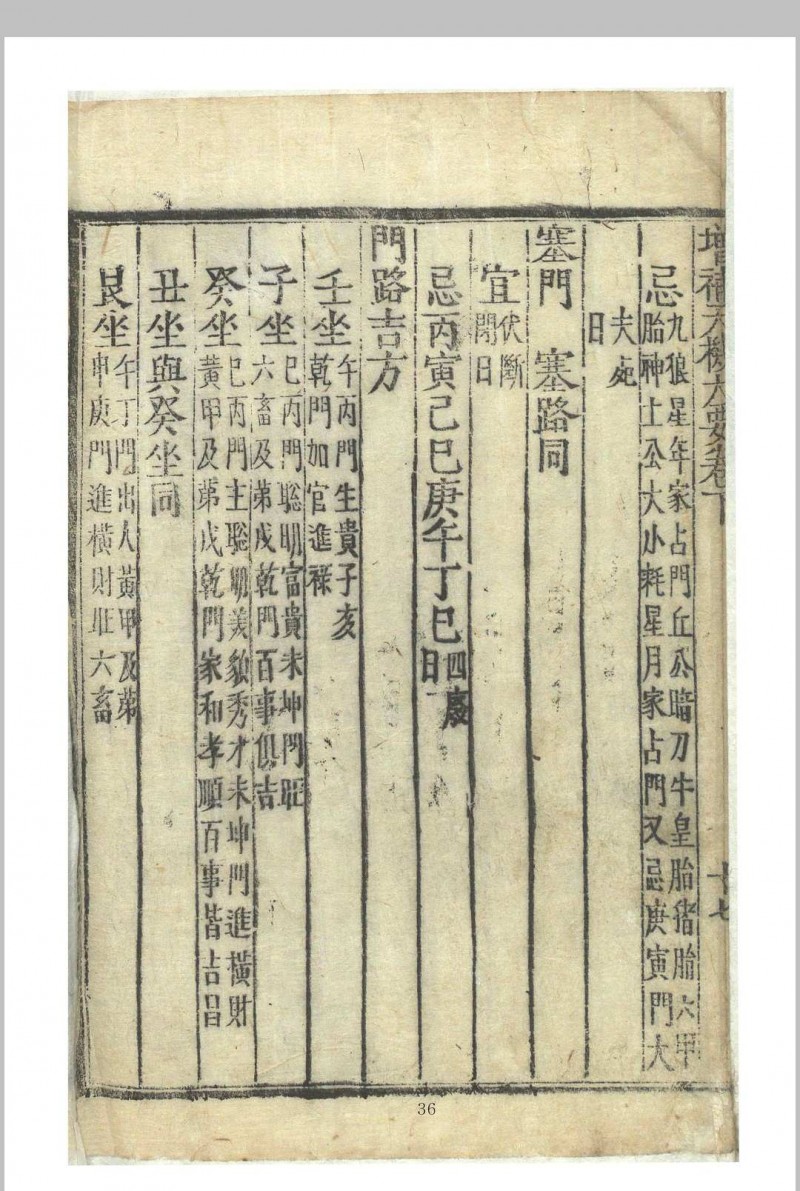 增補天機大要卷下 十七
忌九狼星年家占門丘公暗刀牛皇胎猪胎六甲
胎神土公大小耗星月家占門又忌庚寅門大
夫死
日
塞門 塞路同
宜伏斷
閉日
忌丙寅己巳庚午丁巳四廢
日
門路吉方
壬坐午丙門生貴子亥
乾門加官進祿
子坐巳丙門聰明富貴未坤門旺
六畜及第戌乾門百事俱吉
癸坐巳丙門主聰明美貌秀才未坤門進橫財
黃甲及第戌乾門家和孝順百事皆吉昌
丑坐與癸坐同
艮坐午丁門出人黃甲及第
申庚門進橫財旺六畜
36